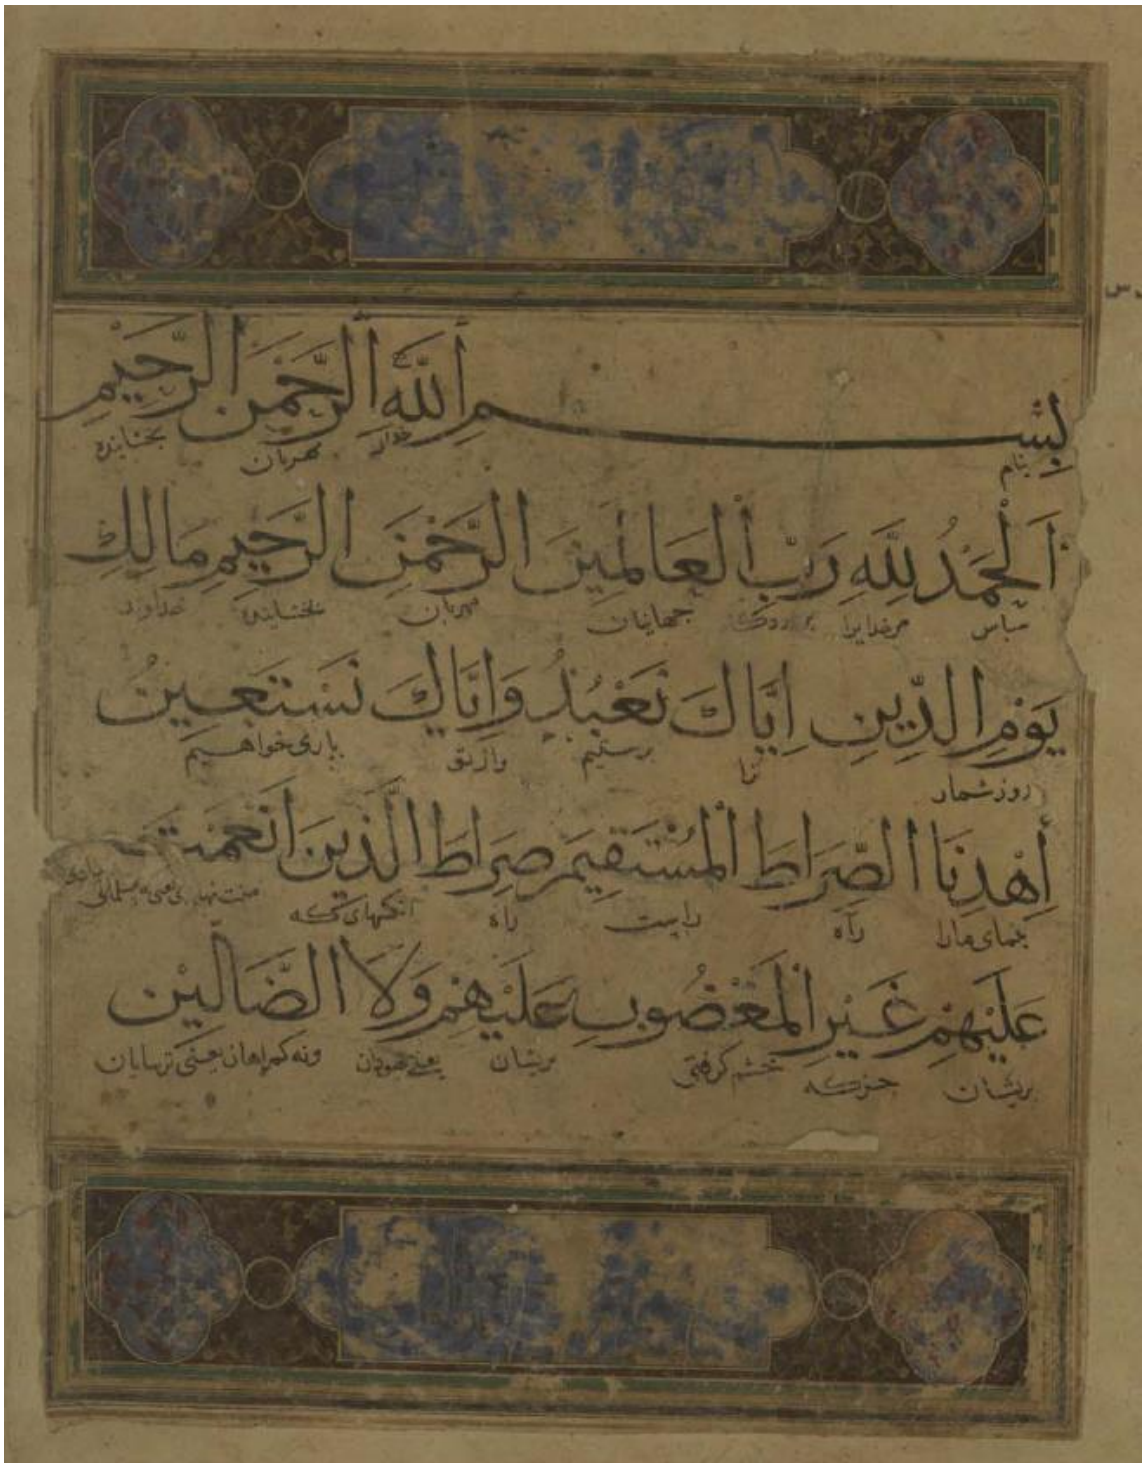 بِسْمِ اللَّهِ الرَّحْمَنِ الرَّحِيمِ
بنام خدای مهربان بخشاینده
اَلْحَمْدُ لِلَّهِ رَبِّ الْعَالَمِينَ الرَّحْمَنِ الرَّحِيمِ مَالِكِ
سپاس مرخدایرا جهانیان مهربان بخشاینده خداوند
يَوْمِ الدِّينِ اِيَّاكَ نَعْبُدُ وَاِيَّاكَ نَسْتَعِينُ
روز شمار ترا پرستیم واز تو یاری خواهیم
اِهْدِنَا الصِّرَاطَ الْمُسْتَقِيمَ صِرَاطَ الَّذِينَ اَنْعَمْتَ
بنمای مارا راه راست راه آنکسهای که منت نهادی
عَلَيْهِمْ غَيْرِ الْمَغْضُوبِ عَلَيْهِمْ وَلَا الضَّالِّينَ
بریشان جزکه خشم گرفتی بریشان یعنی جهودان ونه گمراهان یعنی ترسایان